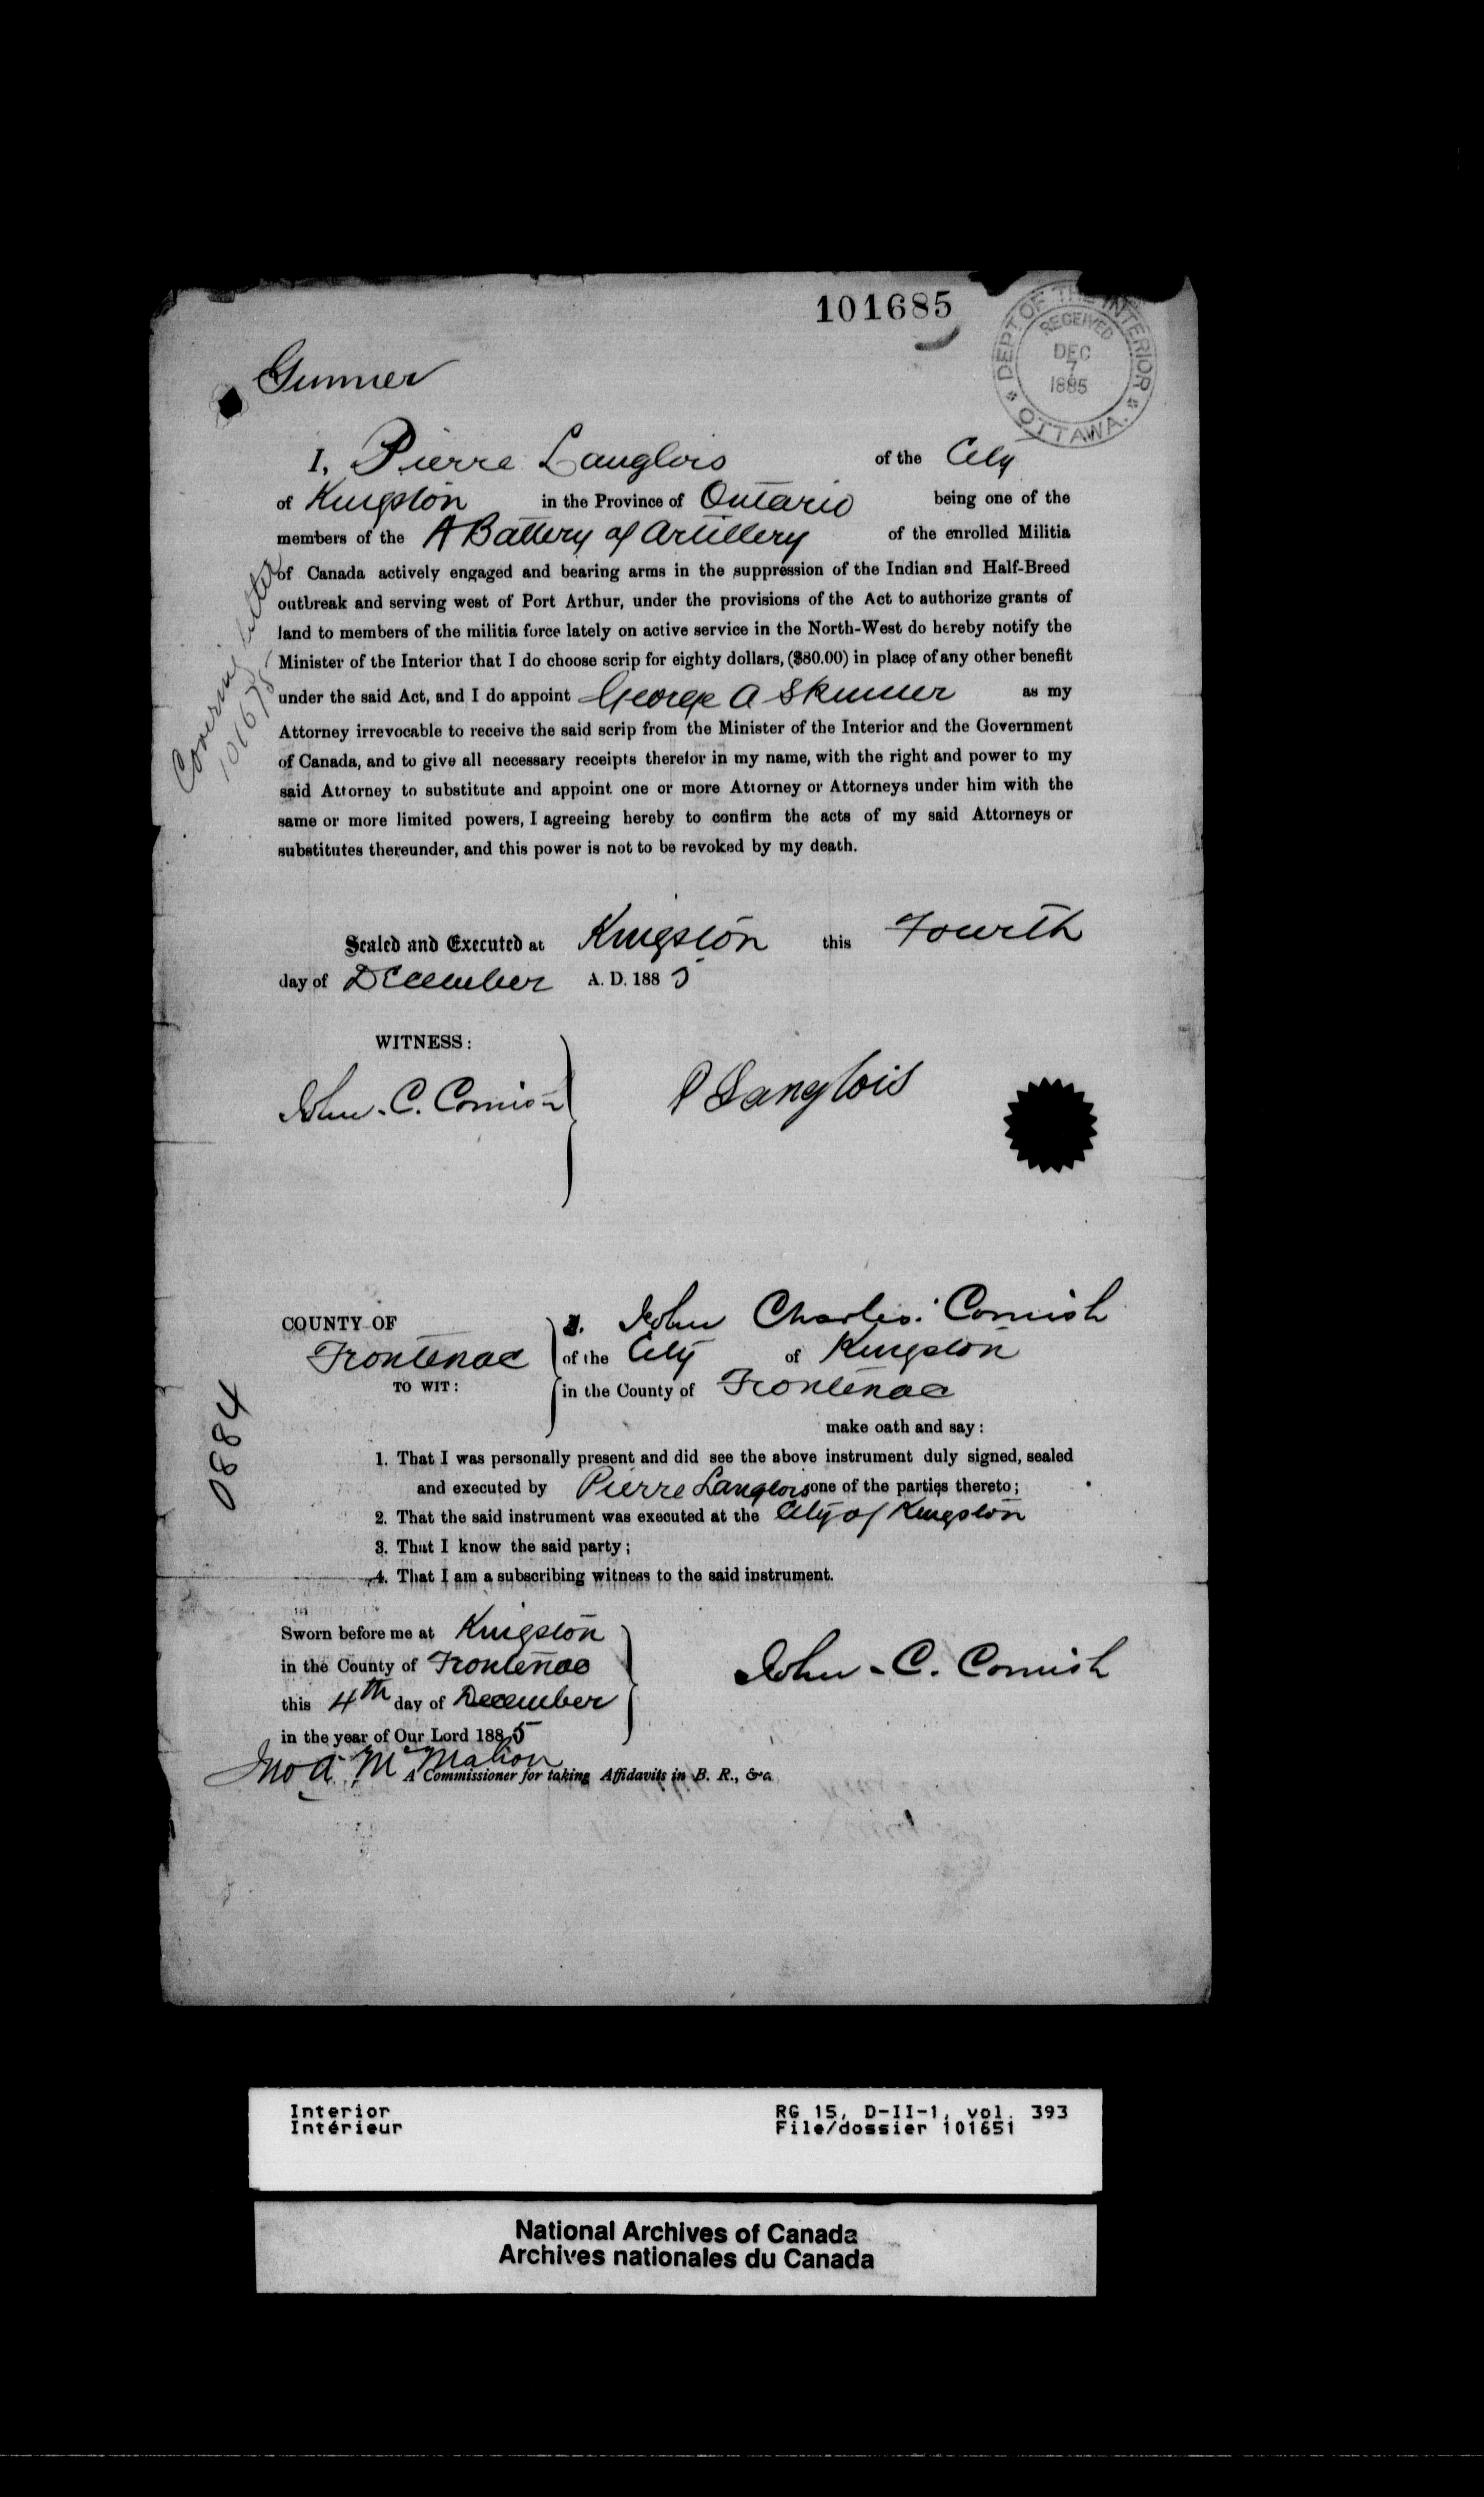 101685
DEPT OF THE INTERIOR
RECEIVED
DEC
7
1885
OTTAWA.
Gunner
I, Pierre Langlois of the City
of Kingston in the Province of Ontario being one of the
members of the A Battery of Artillery of the enrolled Militia
of Canada actively engaged and bearing arms in the suppression of the Indian and Half-Breed
outbreak and serving west of Port Arthur, under the provisions of the Act to authorize grants of
land to members of the militia force lately on active service in the North-West do hereby notify the
Minister of the Interior that I do choose scrip for eighty dollars, ($80.00) in place of any other benefit
under the said Act, and I do appoint George A Skinner as my
Attorney irrevocable to receive the said scrip from the Minister of the Interior and the Government
of Canada, and to give all necessary receipts therefor in my name, with the right and power to my
said Attorney to substitute and appoint one or more Attorney or Attorneys under him with the
same or more limited powers, I agreeing hereby to confirm the acts of my said Attorneys or
substitutes thereunder, and this power is not to be revoked by my death.
Covering letter
101675
Sealed and Executed at Kingston this Fourth
day of December A. D. 188 5
WITNESS:
John. C. Cornish
P Langlois
COUNTY OF
Frontenac
TO WIT:
I. John Charles Cornish
of the City of Kingston
in the County of Frontenac
make oath and say:
1. That I was personally present and did see the above instrument duly signed, sealed
and executed by Pierre Langlois one of the parties thereto;
2. That the said instrument was executed at the City of Kingston
3. That I know the said party;
4. That I am a subscribing witness to the said instrument.
0884
Sworn before me at Kingston
in the County of Frontenac
this 4th day of December
in the year of Our Lord 1885
John - C. Cornish
Jno A. McMahon
A Commissioner for taking Affidavits in B. R., &c.
Interior
Intérieur
RG 15, D-II-1, vol. 393
File/dossier 101651
National Archives of Canada
Archives nationales du Canada